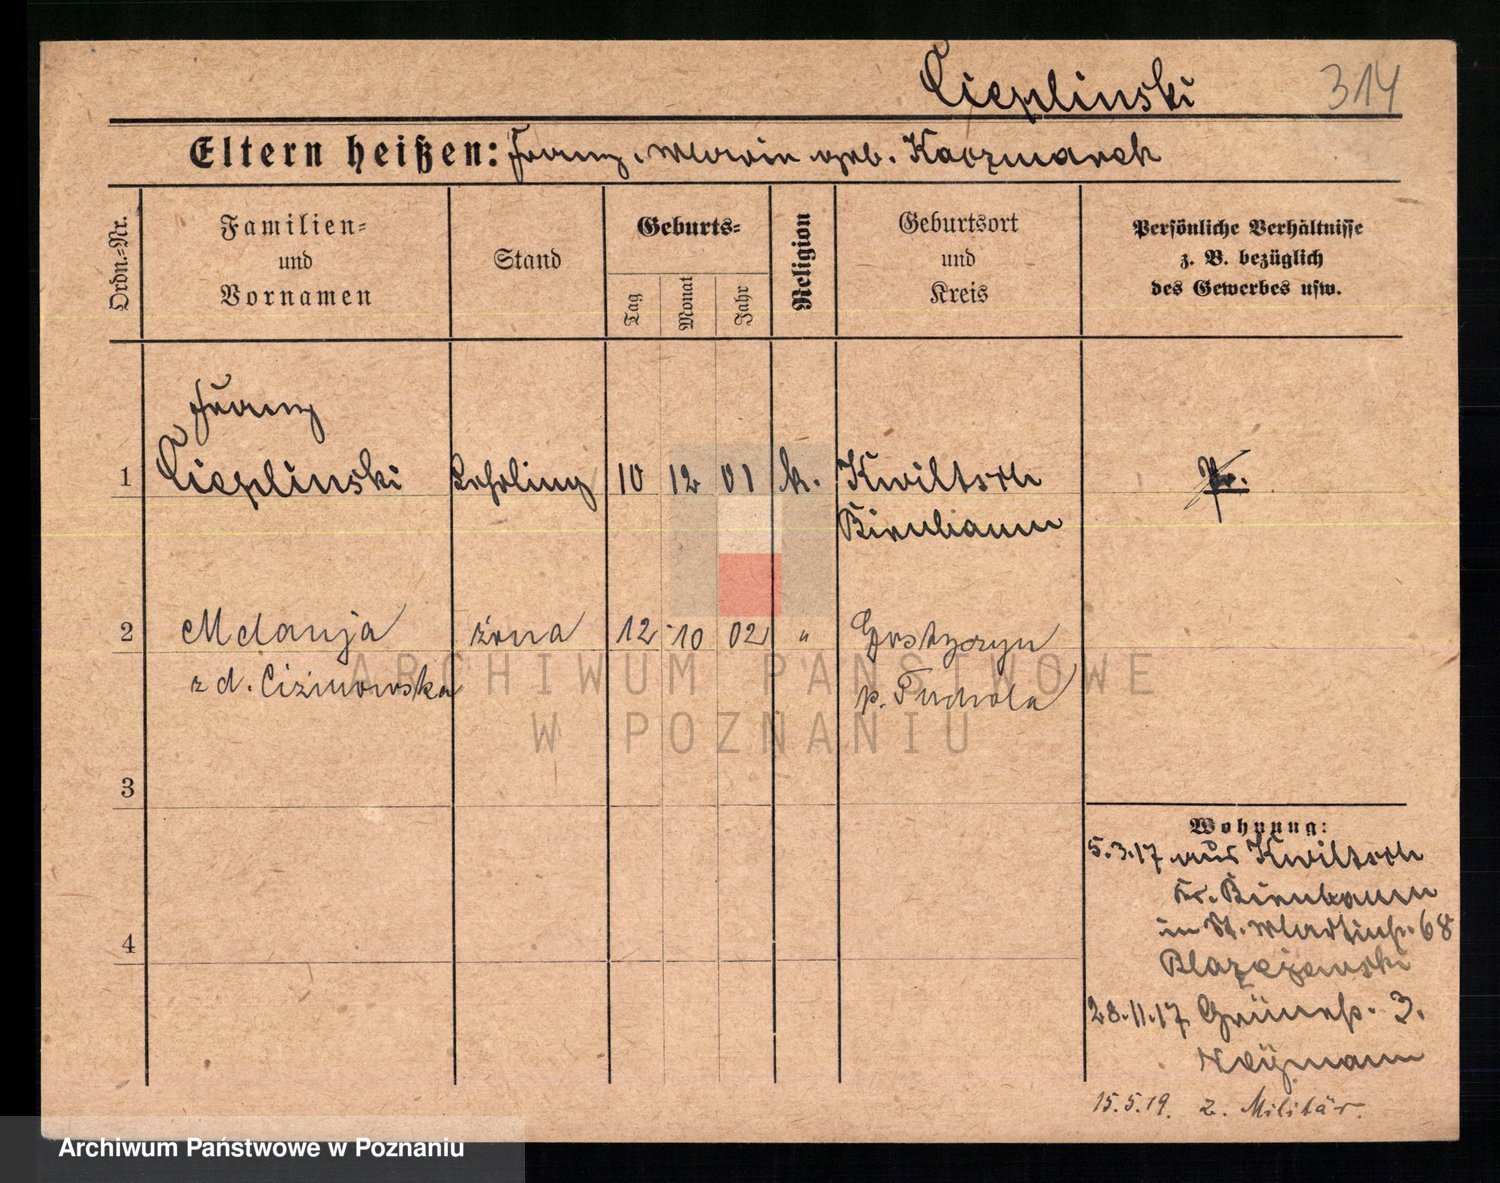 Cieplinski 314
Eltern heißen: Franz, Marie geb. Kaczmarek
Ordn.-Nr.
Familien-
und
Vornamen
Stand
Geburts-
Tag
Monat
Jahr
Religion
Geburtsort
und
Kreis
Persönliche Verhältnisse
z. B. bezüglich
des Gewerbes usw.
Franz
1 Cieplinski Lehrling 10 12 01 k. Kwiltsch Pr.
Birnbaum
2 Melanja żona 12 10 02 " Gostyczyn
z d. Ciżmowska p. Tuchola
3
4
Wohnung:
5.3.17 aus Kwiltsch
Kr. Birnbaum
in St. Martinstr. 68
Blazejewski
28.11.17 Grünestr. 3.
15.5.19. z. Militär.
ARCHIWUM PAŃSTWOWE
W POZNANIU
Archiwum Państwowe w Poznaniu